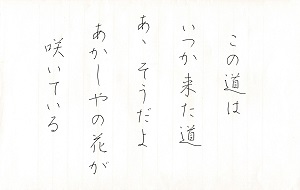 この道は
いつか来た道
あゝそうだよ
あかしやの花が
咲いている